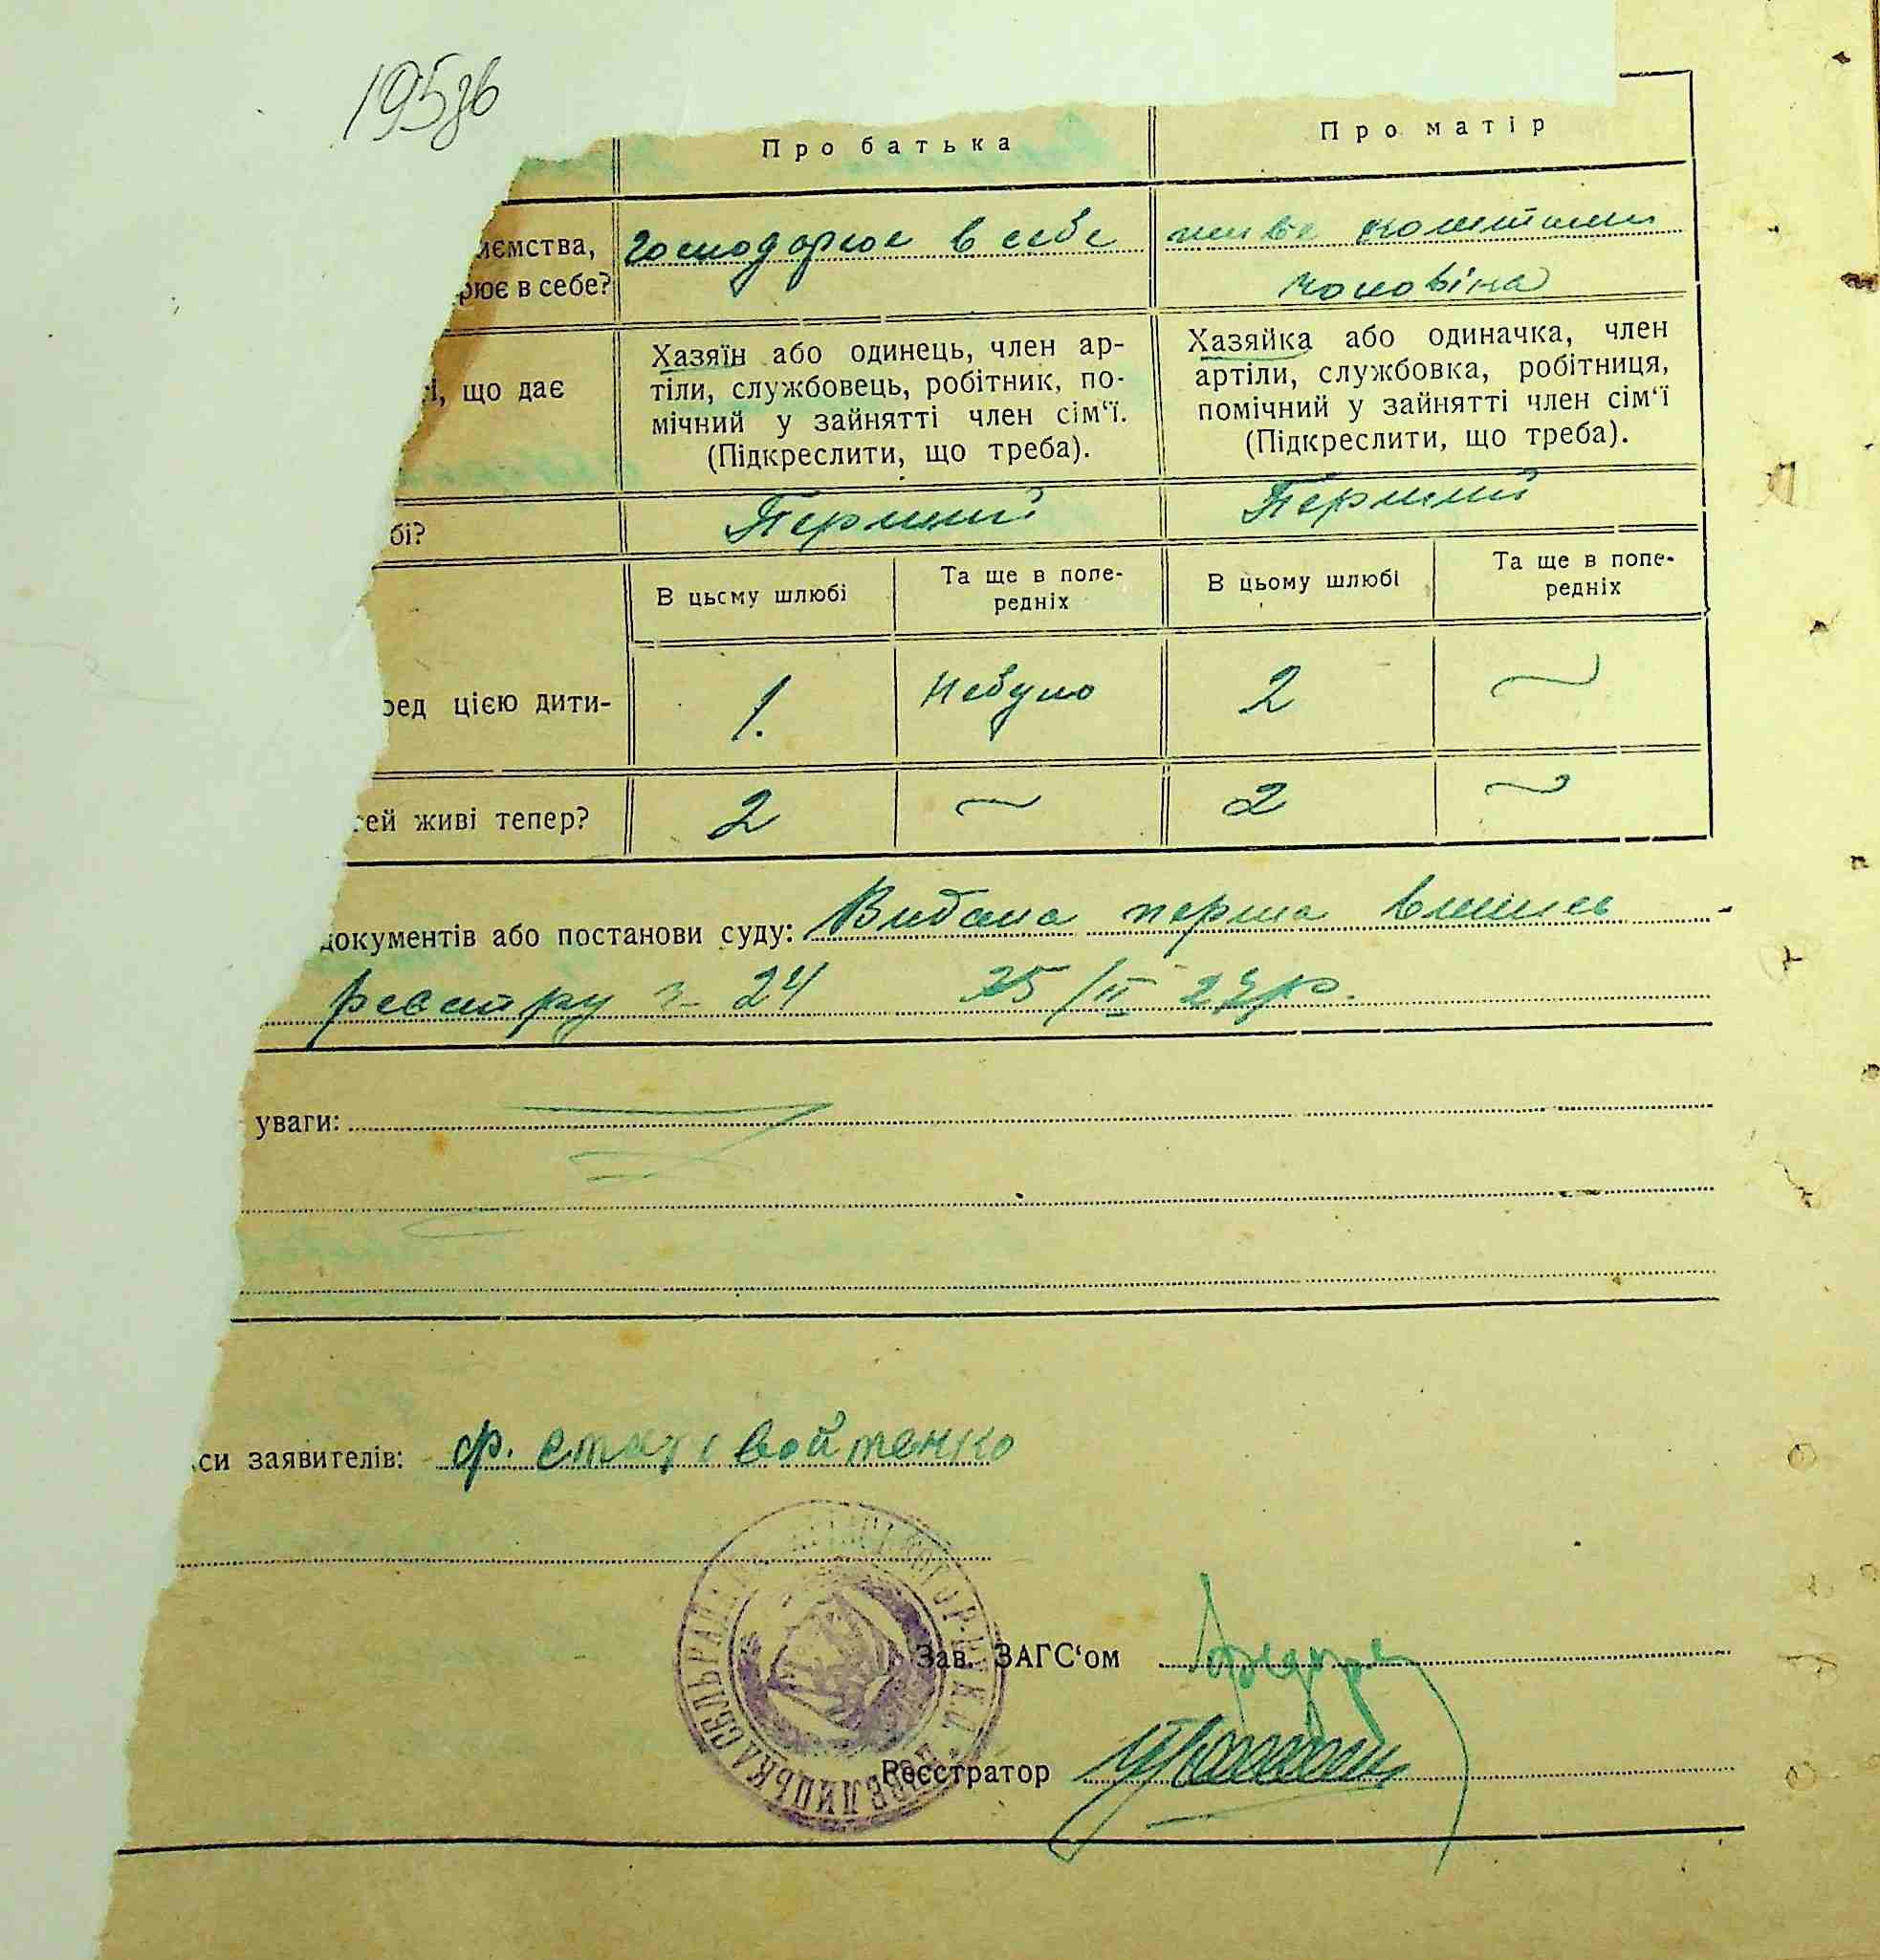 195зв
Про батька
Про матір
иємства,
рює в себе?
Господарює в себе
живе коштами
чоловіка
і, що дає
Хазяїн або одинець, член ар-
тіли, службовець, робітник, по-
мічний у зайнятті член сім‘ї.
(Підкреслити, що треба).
Хазяйка або одиначка, член
артіли, службовка, робітниця,
помічний у зайнятті член сім‘ї
(Підкреслити, що треба).
бі?
Перший
Перший
В цьому шлюбі
Та ще в попе-
редніх
В цьому шлюбі
Та ще в попе-
редніх
ред цією дити-
1.
Небуло
2
~
тей живі тепер?
2
~
2
~
документів або постанови суду: Видана перша випись
реєстру з 24 25/II 29р.
уваги:
си заявителів: Ф. Старовойтенко
Зав. ЗАГС‘ом
Реєстратор
СІЛЬРАДА